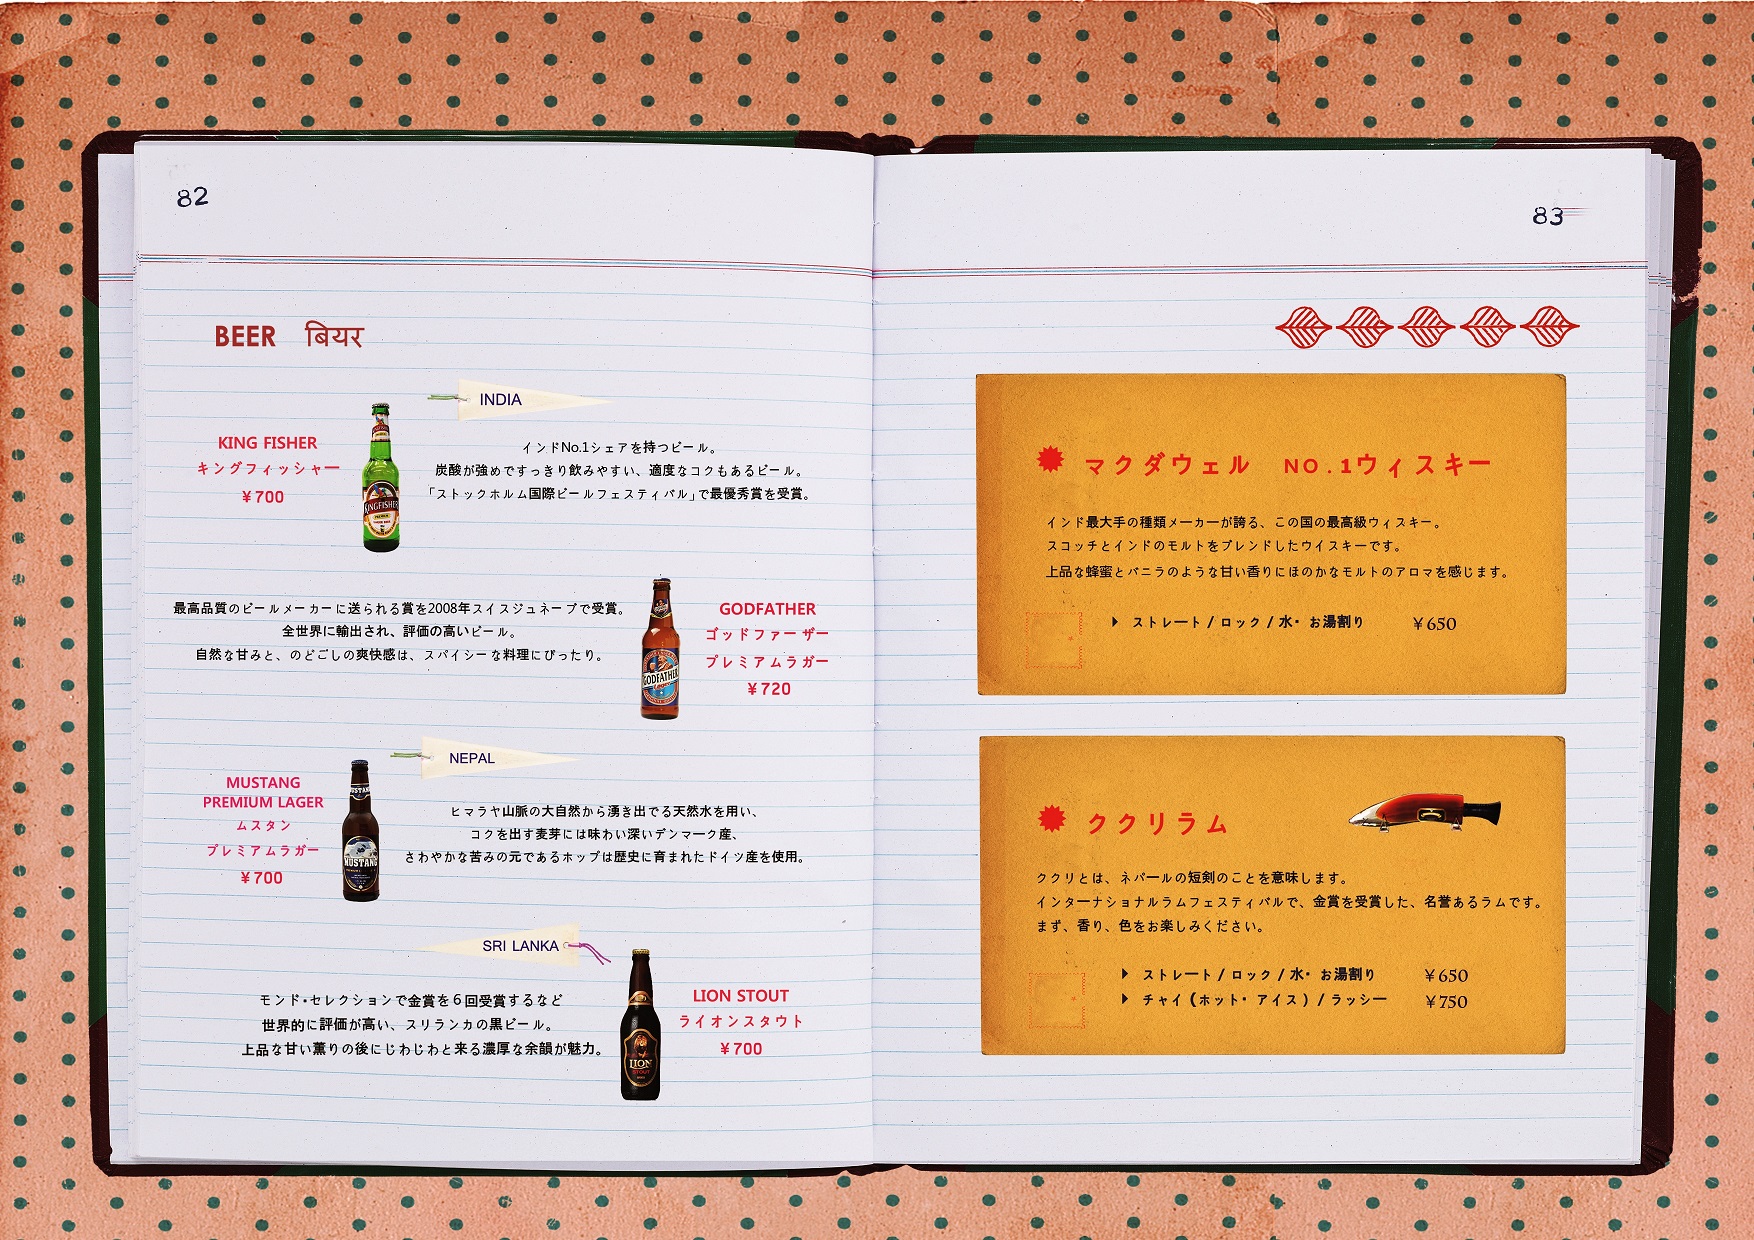 82
BEER बियर
INDIA
KING FISHER
キングフィッシャー
¥700
インドNo.1シェアを持つビール。
炭酸が強めですっきり飲みやすい、適度なコクもあるビール。
「ストックホルム国際ビールフェスティバル」で最優秀賞を受賞。
KINGFISHER
最高品質のビールメーカーに送られる賞を2008年スイスジュネーブで受賞。
全世界に輸出され、評価の高いビール。
自然な甘みと、のどごしの爽快感は、スパイシーな料理にぴったり。
GODFATHER
GODFATHER
ゴッドファーザー
プレミアムラガー
¥720
NEPAL
MUSTANG
PREMIUM LAGER
ムスタン
プレミアムラガー
¥700
MUSTANG
MUSTANG
ヒマラヤ山脈の大自然から湧き出でる天然水を用い、
コクを出す麦芽には味わい深いデンマーク産、
さわやかな苦みの元であるホップは歴史に育まれたドイツ産を使用。
SRI LANKA
モンド・セレクションで金賞を6回受賞するなど
世界的に評価が高い、スリランカの黒ビール。
上品な甘い薫りの後にじわじわと来る濃厚な余韻が魅力。
LION
STOUT
LION STOUT
ライオンスタウト
¥700
83
マクダウェル NO.1ウィスキー
インド最大手の種類メーカーが誇る、この国の最高級ウィスキー。
スコッチとインドのモルトをブレンドしたウイスキーです。
上品な蜂蜜とバニラのような甘い香りにほのかなモルトのアロマを感じます。
ストレート / ロック / 水・お湯割り ¥650
ククリラム
ククリとは、ネパールの短剣のことを意味します。
インターナショナルラムフェスティバルで、金賞を受賞した、名誉あるラムです。
まず、香り、色をお楽しみください。
ストレート / ロック / 水・お湯割り ¥650
チャイ (ホット・アイス) / ラッシー ¥750